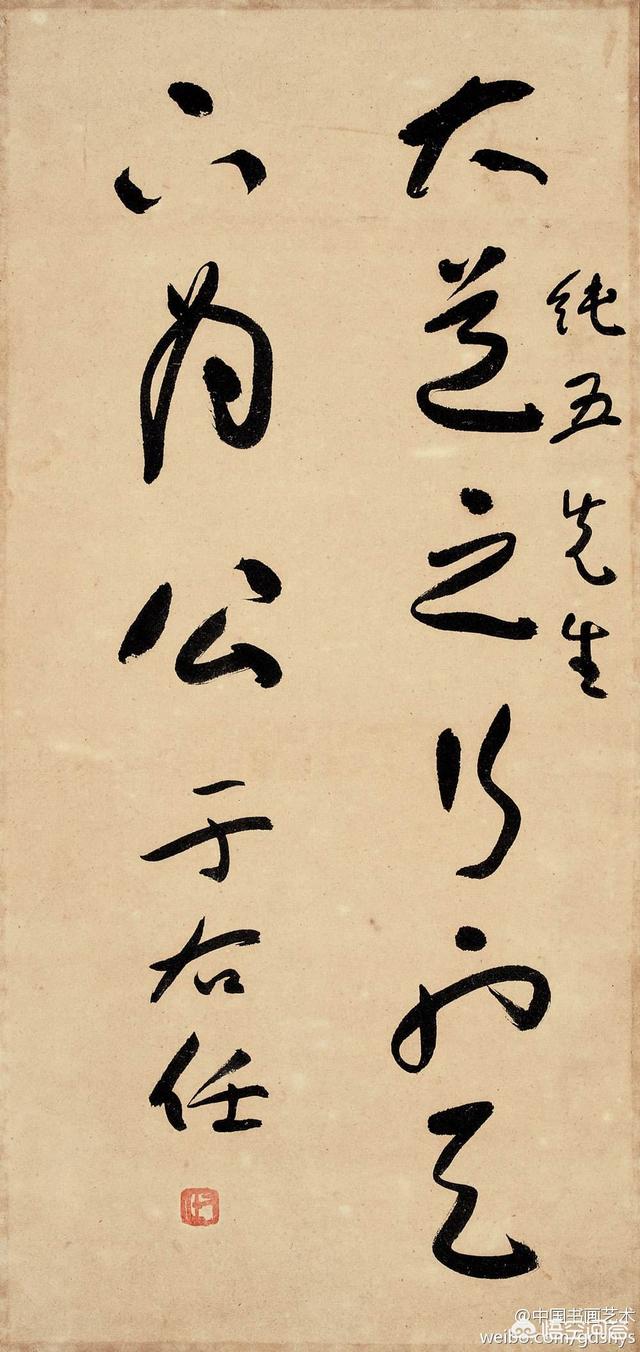 純五先生
大道之行也天
下為公 于右任
@中国书画艺术
悟空问答
weibo.com/gdshys